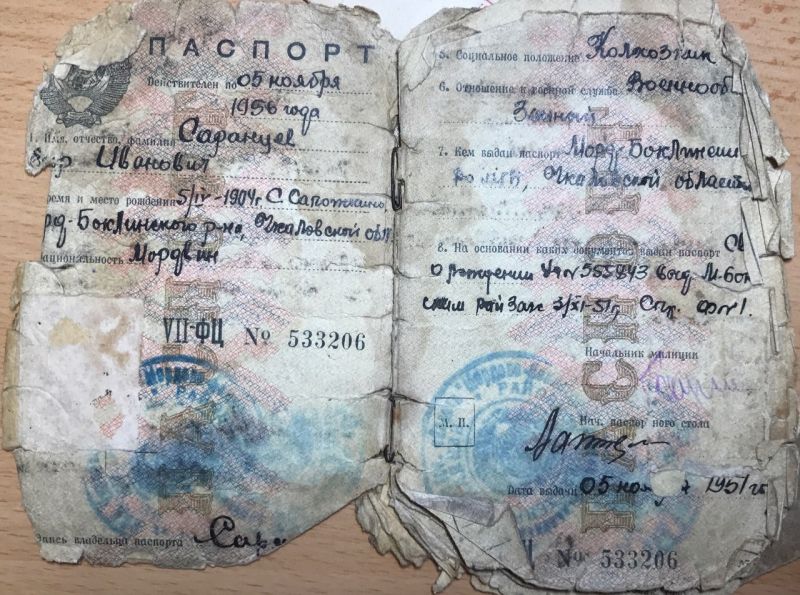 ПАСПОРТ
Действителен по 05 ноября
1956 года
1. Имя, отчество, фамилия Саранцев
Иванович
ремя и место рождения 5/IV-1904г. С Сапожкино
рд-Боклинского р-на, Чкаловской обл
ациональность Мордвин
VII-ФЦ № 533206
пись владельца паспорта Сара
5. Социальное положение Колхозник
6. Отношение к военной службе Военнооб
занный
7. Кем выдан паспорт Морд-Боклинским
Чкаловской области
8. На основании каких документов выдан паспорт Св
о рождении 555843 выд. М-бок
ским рай Загс 3/XI-51г.
Начальник милиции
М. П.
Нач. паспортного стола
Дата выдачи 05 ноя 1951 г
№ 533206